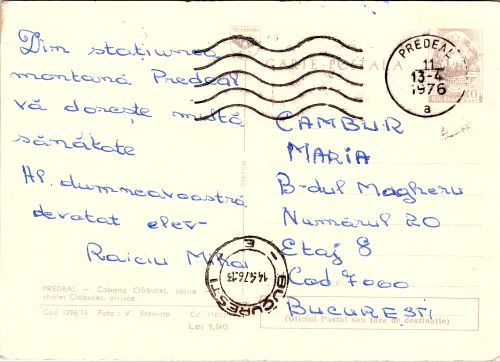 Din stațiunea
montană Predeal
vă dorește multă
sănătate
Al dumneavoastră
devotat elev-
Raiciu Mihai
PREDEAL – Cabana Clăbucet, sosire
chalet Clăbucet, arrivée.
Cod 1296/74 Foto : V. Stamate
Lei 1,90
CARTE POȘTALĂ
PREDEAL
11
13-4
1976
a
CAMBUR
MARIA
B-dul Magheru
Numărul 20
Etaj 8
Cod. 7000
BUCUREȘTI
(Oficiul Poștal sau țara de destinație)
BUCUREȘTI
E